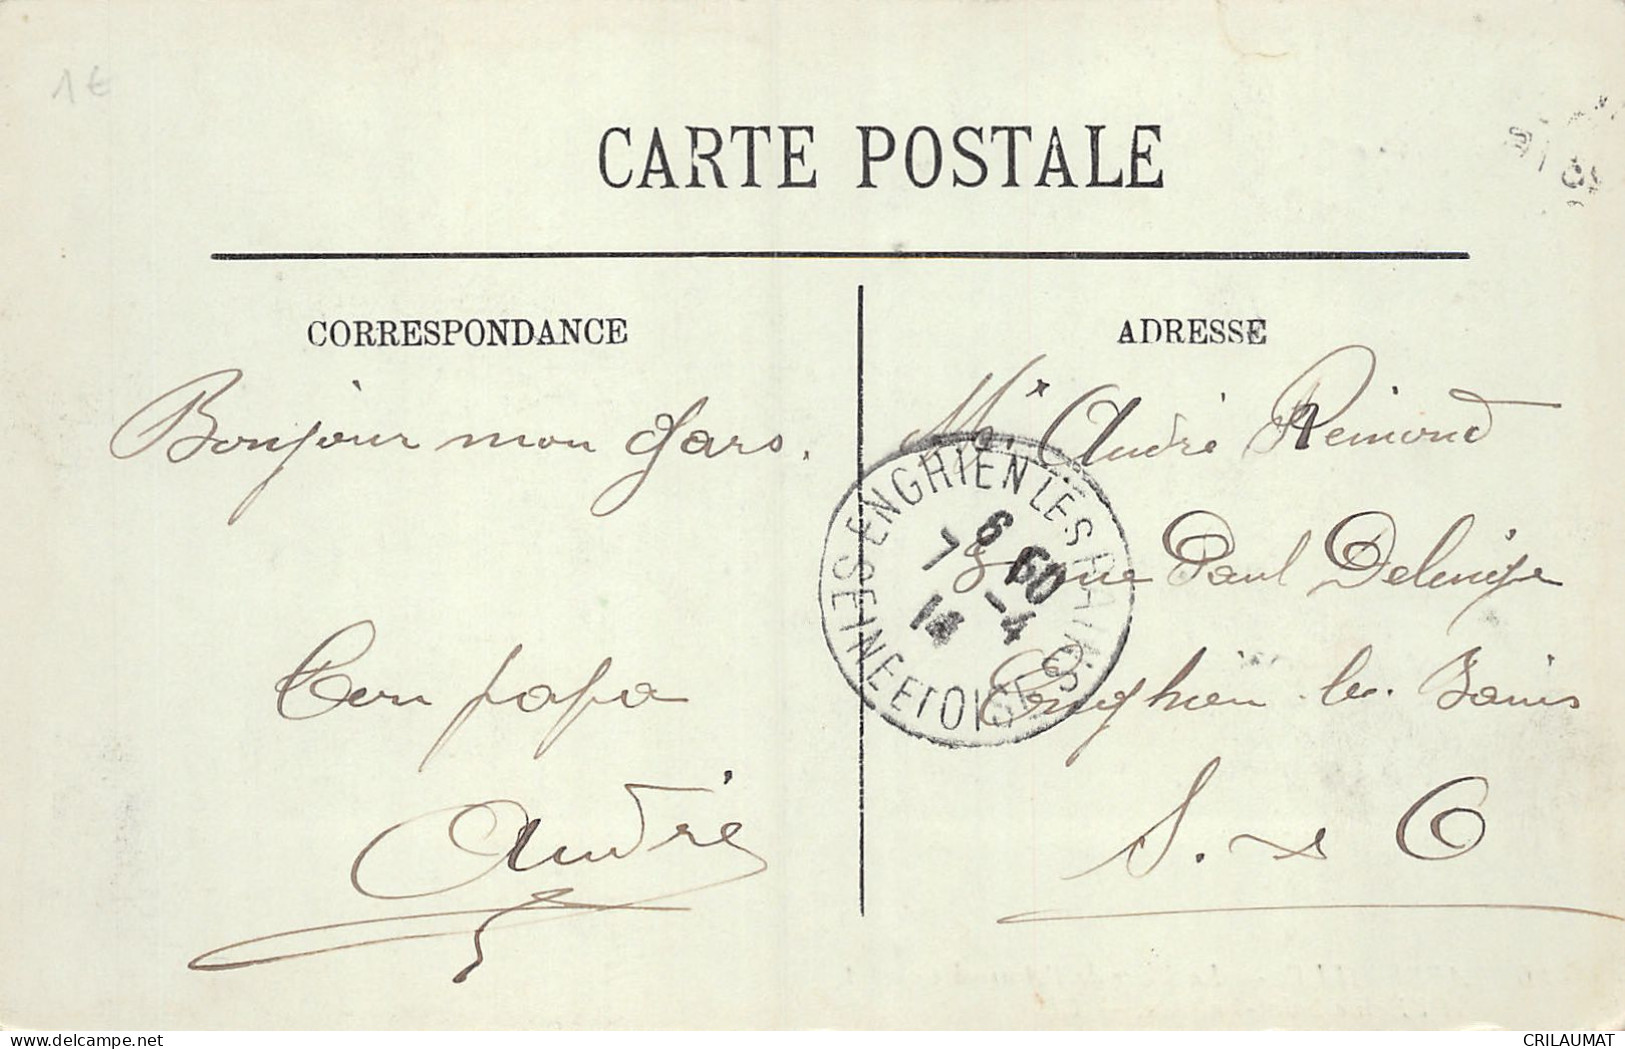 1€
CARTE POSTALE
CORRESPONDANCE
ADRESSE
Bonjour mon Gars.
Ton papa
André
Mr André Reimond
rue Paul
Enghien les Bains
S. & O
ENGHIEN LES BAINS
SEINE ET OISE
7 -4
14
CRILAUMAT